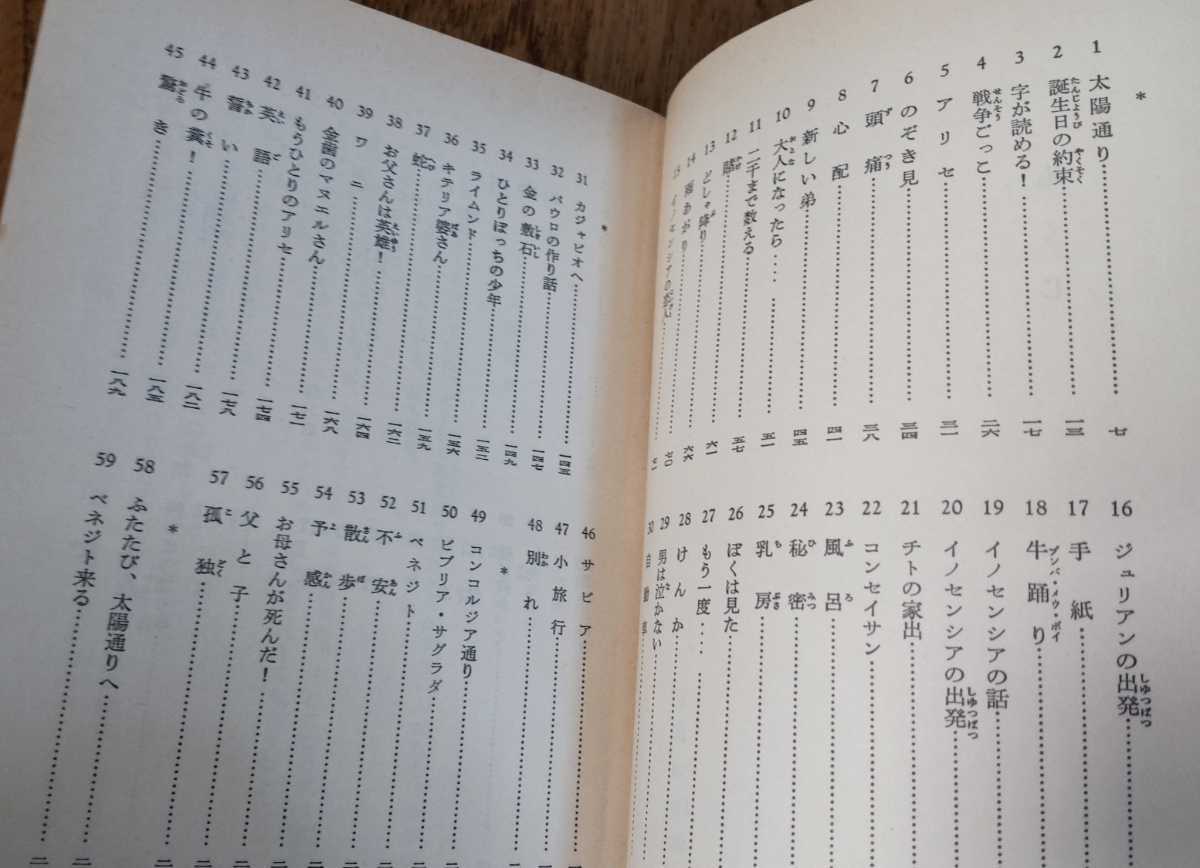 ＊
1 太陽通り………七
2 誕生日の約束………一三
3 字が読める！………一七
4 戦争ごっこ………二六
5 アリセ………三一
6 のぞき見………三四
7 頭痛………三八
8 心配………四一
9 新しい弟………四五
10 大人になったら………五一
11 二千まで数える………五七
12 ………六一
13 どしゃ降り………六六
14 雨あがり………七〇
15 イノセンシアの
16 ジュリアンの出発………
17 手紙………
18 牛踊り………
19 イノセンシアの話………
20 イノセンシアの出発………
21 チトの家出………
22 コンセイサン………
23 風呂………
24 秘密………
25 乳房………
26 ぼくは見た………
27 もう一度………
28 けんか………
29 男は泣かない………
30 自動車………
＊
31 カジャピオへ………一四三
32 パウロの作り話………一四七
33 金の敷石………一四九
34 ひとりぼっちの少年………一五二
35 ライムンド………一五六
36 キテリア婆さん………一五九
37 蛇………一六二
38 お父さんは英雄！………一六四
39 ワニ………一六八
40 金歯のマヌエルさん………一七一
41 もうひとりのアリセ………一七四
42 英語………一七八
43 誓い………一八二
44 牛の糞！………一八五
45 驚き………一八九
46 サビア………
47 小旅行………
48 別れ………
＊
49 コンコルジア通り………
50 ビブリア・サグラダ………
51 ベネジト………
52 不安………
53 散歩………
54 予感………
55 お母さんが死んだ！………
56 父と子………
57 孤独………
＊
58 ふたたび、太陽通りへ
59 ベネジト来る………